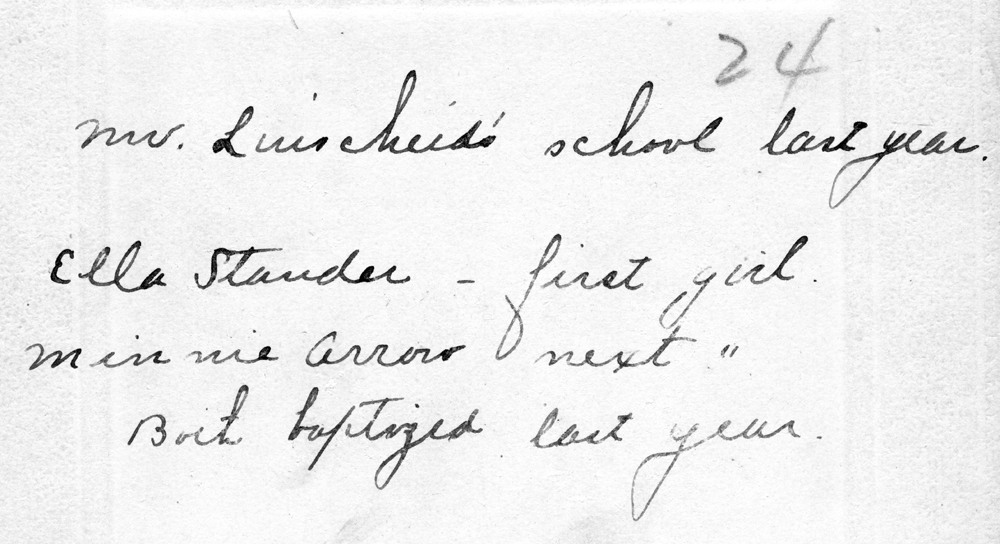 24
Mr. Linscheid's school last year.
Ella Stander - first girl.
Minnie Arrow next "
Both baptized last year.